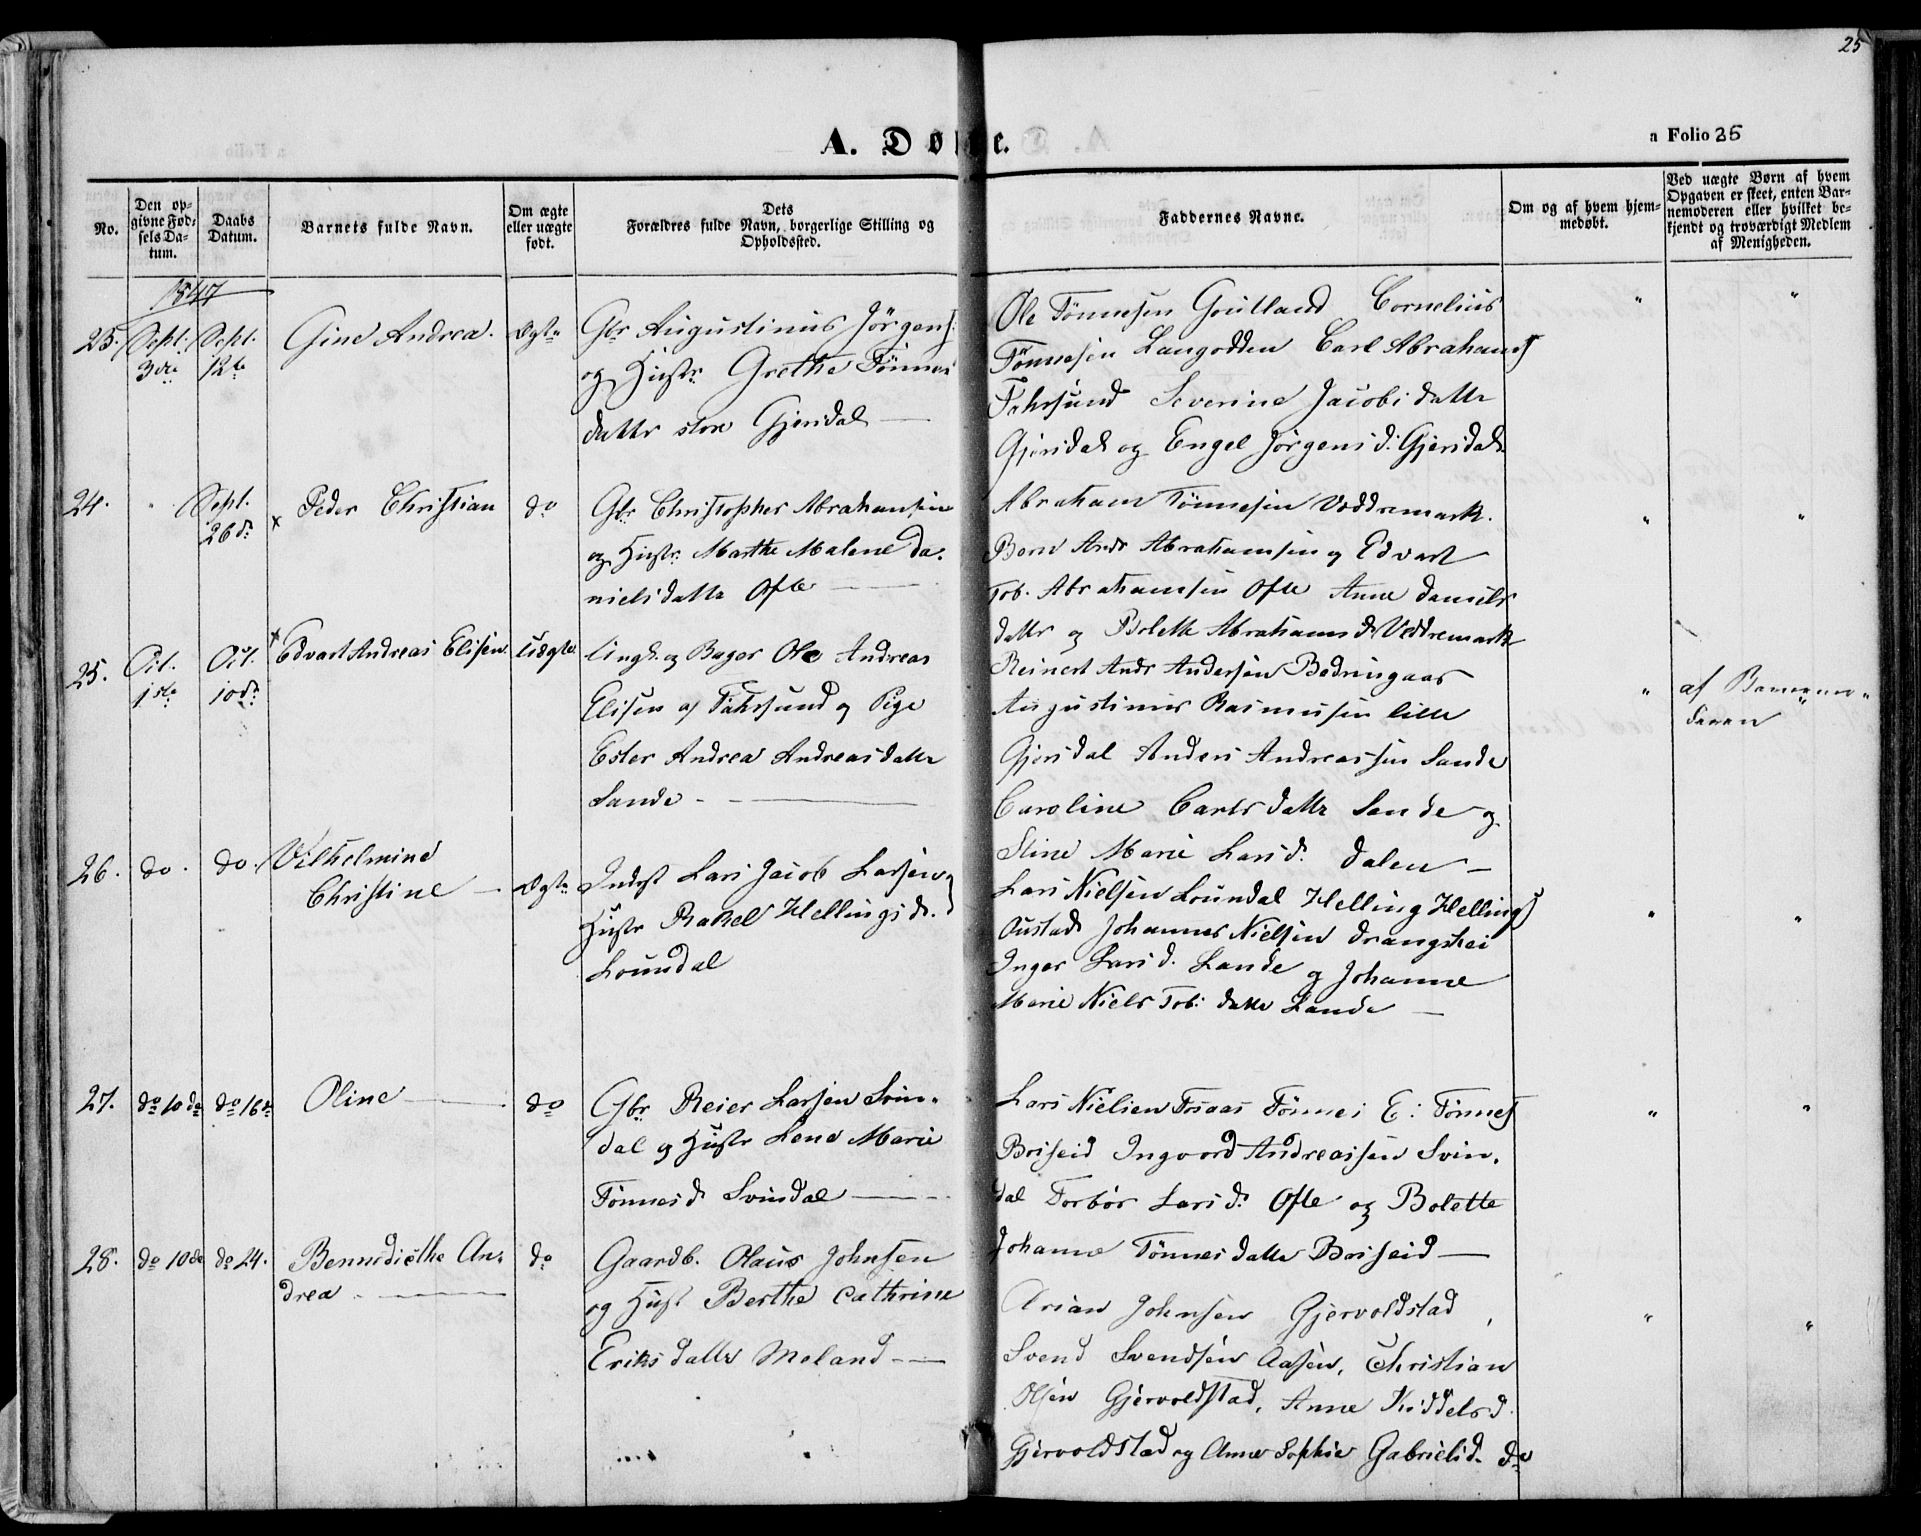 25
A. Døbte.
a Folio 25
No.
Den opgivne Fødsels Datum.
Daabs Datum.
Barnets fulde Navn.
Om ægte eller uægte født.
Dets Forældres fulde Navn, borgerlige Stilling og Opholdssted.
Faddernes Navne.
Om og af hvem hjemmedøbt.
Ved uægte Børn af hvem Opgaven er skeet, enten Barnemoderen eller hvilket bekjendt og troværdigt Medlem af Menigheden.
1847
23. Sept. 3die Sept. 12te Gine Andrea. Ægte
Gbr Augustinus Jørgens.
og Hustr. Grethe Tønnes
datter store Gjersdal
Ole Tønnesen Goutland Cornelius
Tønnesen Langodden Carl Abrahams
Fahrsund Severine Jacobsdatter
Gjersdal og Engel Jørgensd. Gjersdal
"
"
24. " Sept. 26d. x Peder Christian do
Gbr Christopher Abrahamsen
og Hustr. Marthe Malene Da-
nielsdatter Ofte
Abraham Tønnesen Veddremark.
Bern Andr Abrahamsen og Edvart
Tob. Abrahamsen Ofte Anne Daniels
datter og Bolette Abrahamsd. Veddremark
"
"
25. Oct. 1ste Oct. 10de x Edvart Andreas Elisen Uægte
Ungk. og Bager Ole Andreas
Elisen af Fahrsund og Pige
Ester Andrea Andreasdatter
Sande
Reinert Andr Andersen Bødringaas
Augustinus Rasmusen lille
Gjersdal Anders Andreassen Sande
Caroline Carlsdatter Sande og
Stine Marie Larsd. Dalen
"
af Barnemo-
deren
26. do. do. Vilhelmine
Christine Ægte
Inderst Lars Jacob Larsen og
Hustr Rakel Hellingsdr.
Loundal
Lars Nielsen Loundal Helling Hellings
Oustad Johannes Nielsen Drangshei
Inger Larsd. Lande og Johanne
Marie Niels Tob. datter Lande
"
"
27. do 10de do 16de Oline do
Gbr Reier Larsen Svin-
dal og Hustr Lene Marie
Tønnesd. Svindal
Lars Nielsen Fosaas Tønnes E. Tønnes
Briseid Ingvord Andreassen Svin-
dal Torbør Larsd. Ofte og Bolette
Johanne Tønnesdatter Briseid
"
"
28. do 10de do 24. Bennedicthe An-
drea do
Gaardb. Olaus Johnsen
og Hust Berthe Cathrine
Eriksdatter Meland
Arian Johnsen Gjervoldstad,
Svend Svendsen Aasen, Christian
Olsen Gjervoldstad, Anne Kiddelsd.
Gjervoldstad og Anne Sophie Gabrielsd. do
"
"